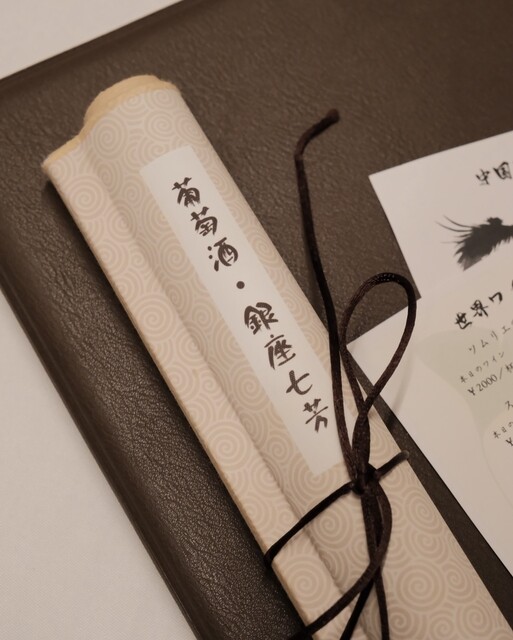 葡萄酒・銀座七芳
中国
世界ワイ
ソムリエ
本日のワイン
￥2000／杯
ス
本日の
￥